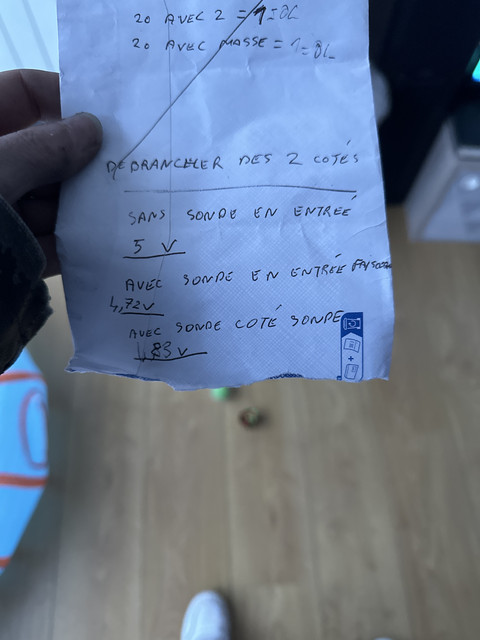 20 AVEC 2 = 1=OL
20 AVEC MASSE = 1=OL
DEBRANCHER DES 2 COTÉS
SANS SONDE EN ENTREÉ
5 V
AVEC SONDE EN ENTREÉ
4,72V
AVEC SONDE COTÉ SONDE
V